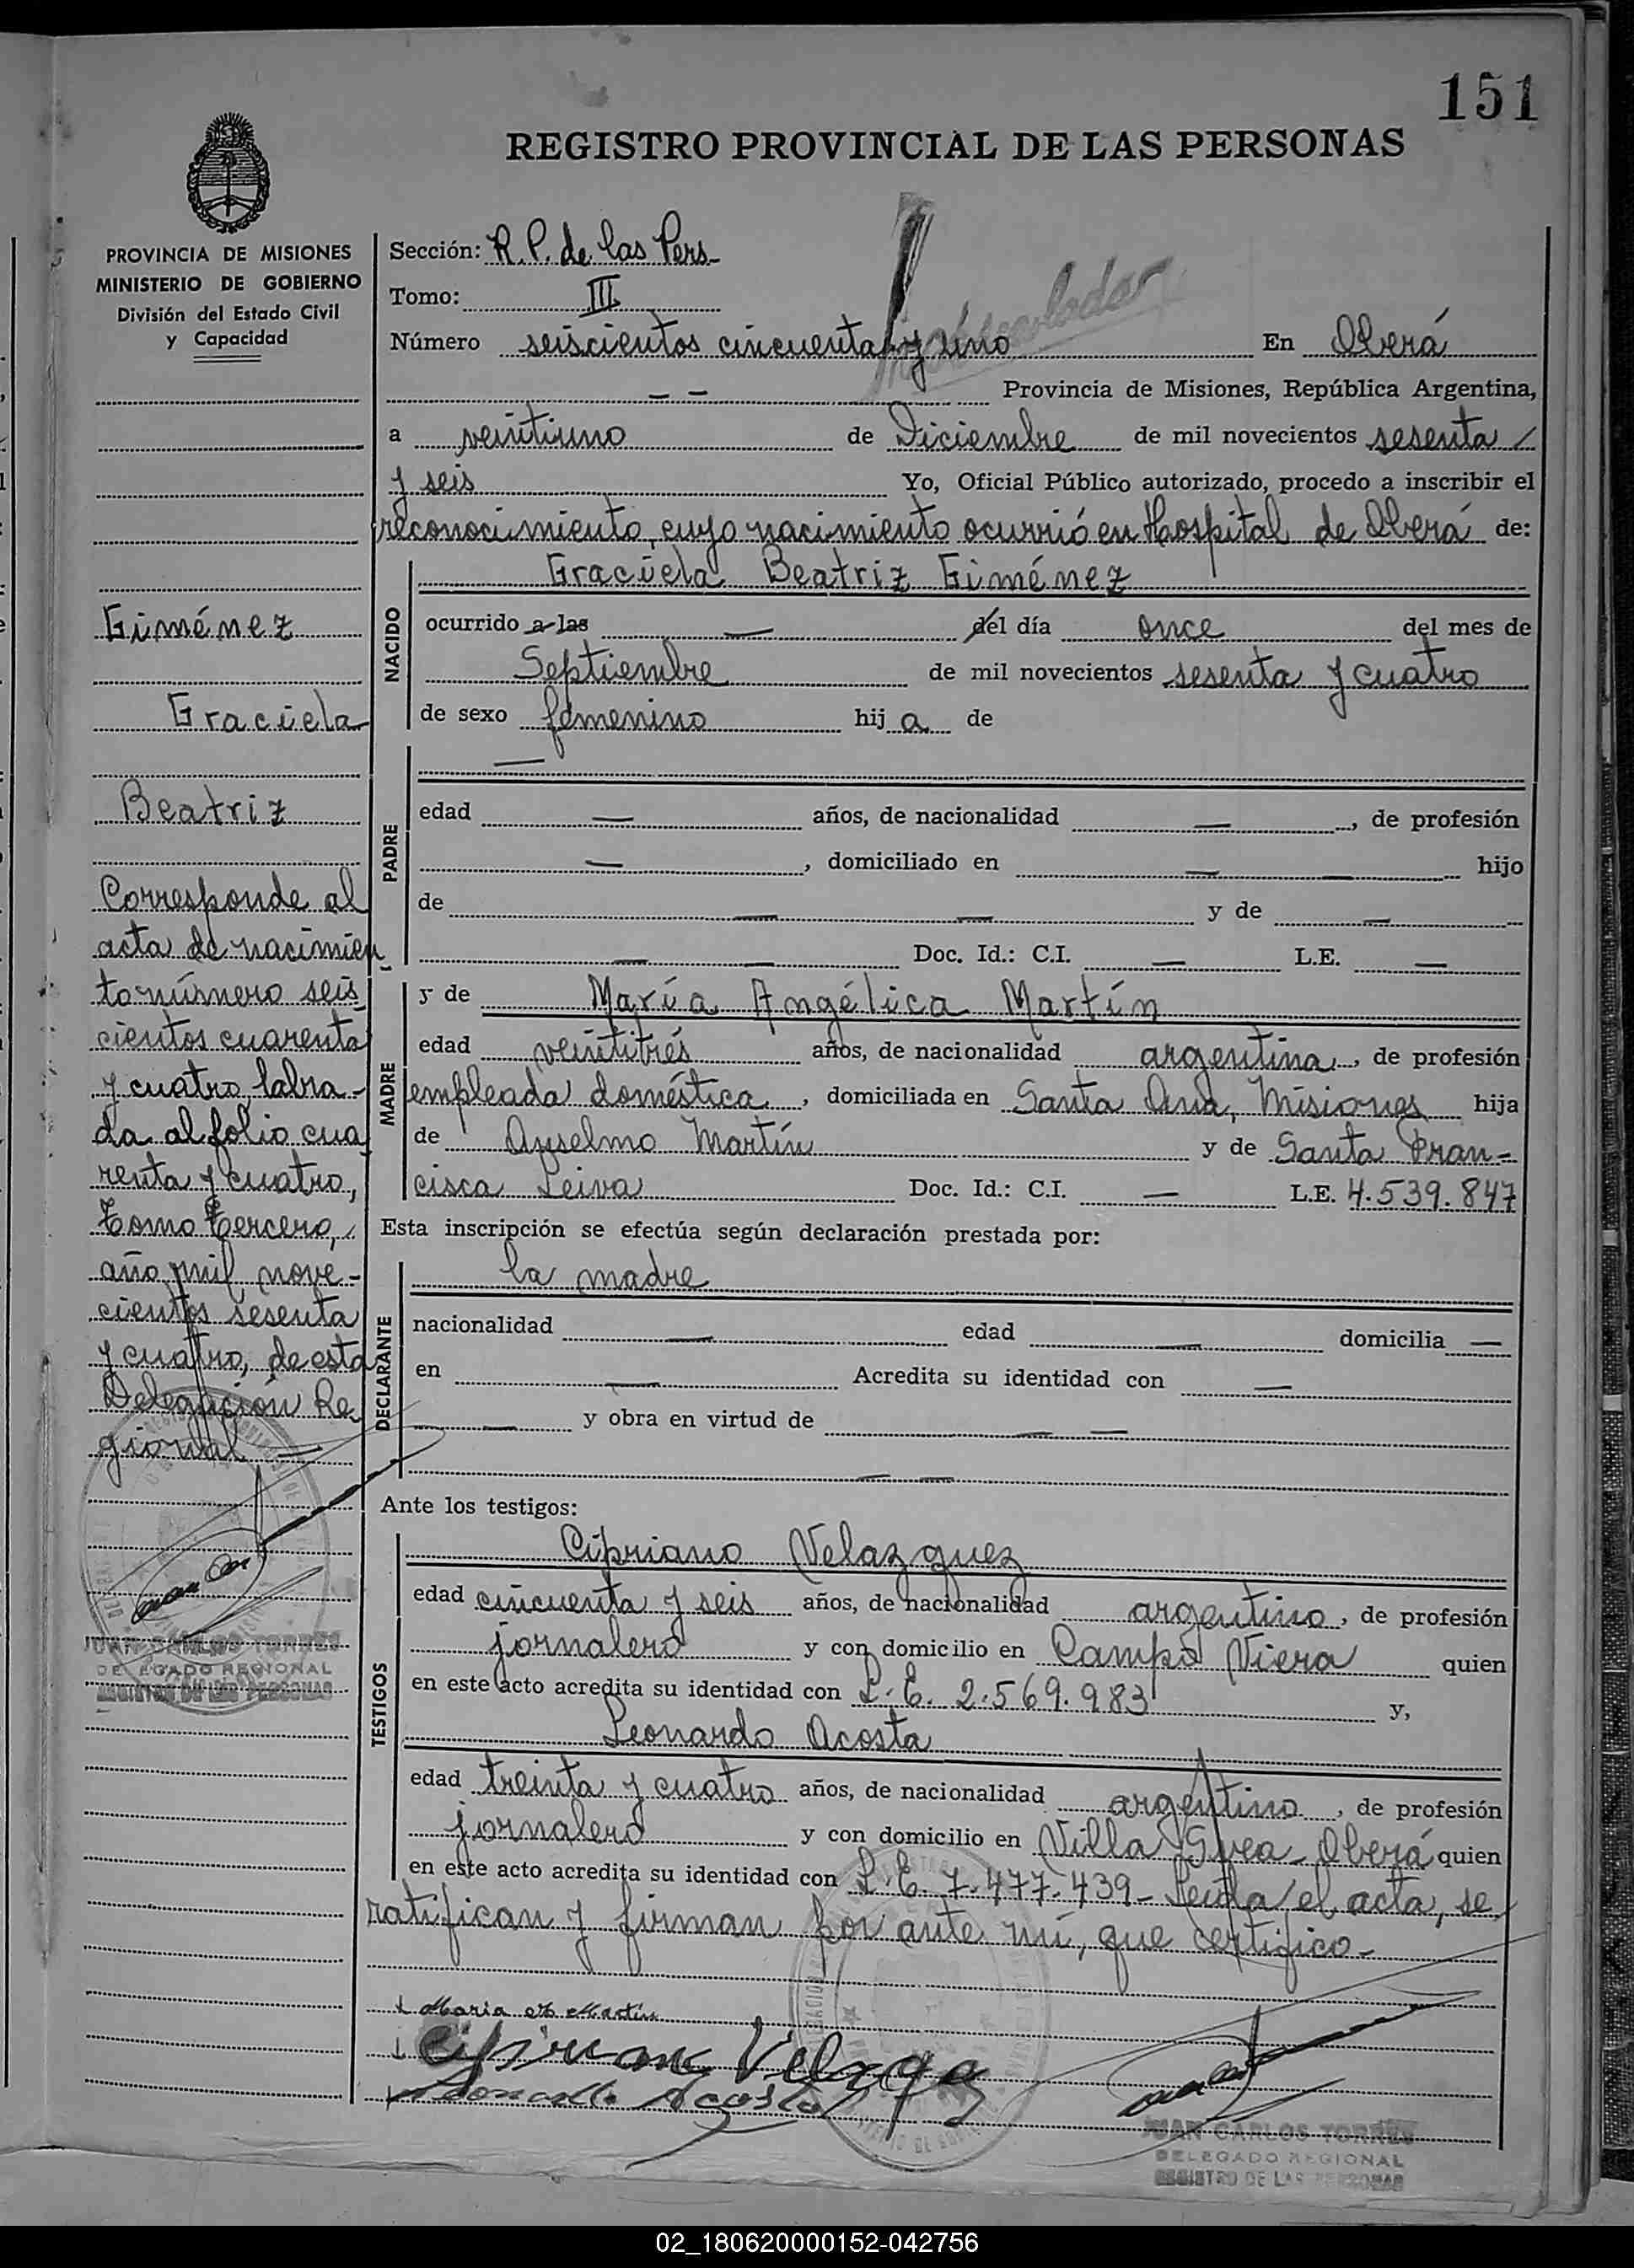 151
REGISTRO PROVINCIAL DE LAS PERSONAS
PROVINCIA DE MISIONES
MINISTERIO DE GOBIERNO
División del Estado Civil
y Capacidad
Giménez
Graciela
Beatriz
Corresponde al
acta de nacimien
to número seis
cientos cuarenta
y cuatro, labra-
da al folio cua
renta y cuatro,
tomo tercero,
año mil nove-
cientos sesenta
y cuatro, de esta
Delegación Re
gional —
JUAN CARLOS TORRES
DELEGADO REGIONAL
REGISTRO DE LAS PERSONAS
Sección: R.P. de las Pers-
Tomo: III
Número seiscientos cincuenta y uno En Oberá
— — Provincia de Misiones, República Argentina,
a veintiuno de Diciembre de mil novecientos sesenta /
y seis Yo, Oficial Público autorizado, procedo a inscribir el
reconocimiento, cuyo nacimiento ocurrió en Hospital de Oberá de:
NACIDO
Graciela Beatriz Giménez
ocurrido a las — del día once del mes de
Septiembre de mil novecientos sesenta y cuatro
de sexo femenino hija de
PADRE
—
edad — años, de nacionalidad —, de profesión
—, domiciliado en — — hijo
de — — y de —
— — Doc. Id.: C.I. — L.E. —
MADRE
y de María Angélica Martín
edad veintitrés años, de nacionalidad argentina, de profesión
empleada doméstica, domiciliada en Santa Ana, Misiones hija
de Anselmo Martín y de Santa Fran-
cisca Leiva Doc. Id.: C.I. — L.E. 4.539.847
Esta inscripción se efectúa según declaración prestada por:
DECLARANTE
la madre
nacionalidad — edad — domicilia —
en — Acredita su identidad con —
— y obra en virtud de — —
— —
Ante los testigos:
TESTIGOS
Cipriano Velazquez
edad cincuenta y seis años, de nacionalidad argentino, de profesión
jornalero y con domicilio en Campo Viera quien
en este acto acredita su identidad con L.E. 2.569.983 y,
Leonardo Acosta
edad treinta y cuatro años, de nacionalidad argentino, de profesión
jornalero y con domicilio en Villa Svea - Oberá quien
en este acto acredita su identidad con L.E. 7.477.439- Leída el acta, se
ratifican y firman por ante mí, que certifico-
Maria A Martin
JUAN CARLOS TORRES
DELEGADO REGIONAL
REGISTRO DE LAS PERSONAS
02_180620000152-042756